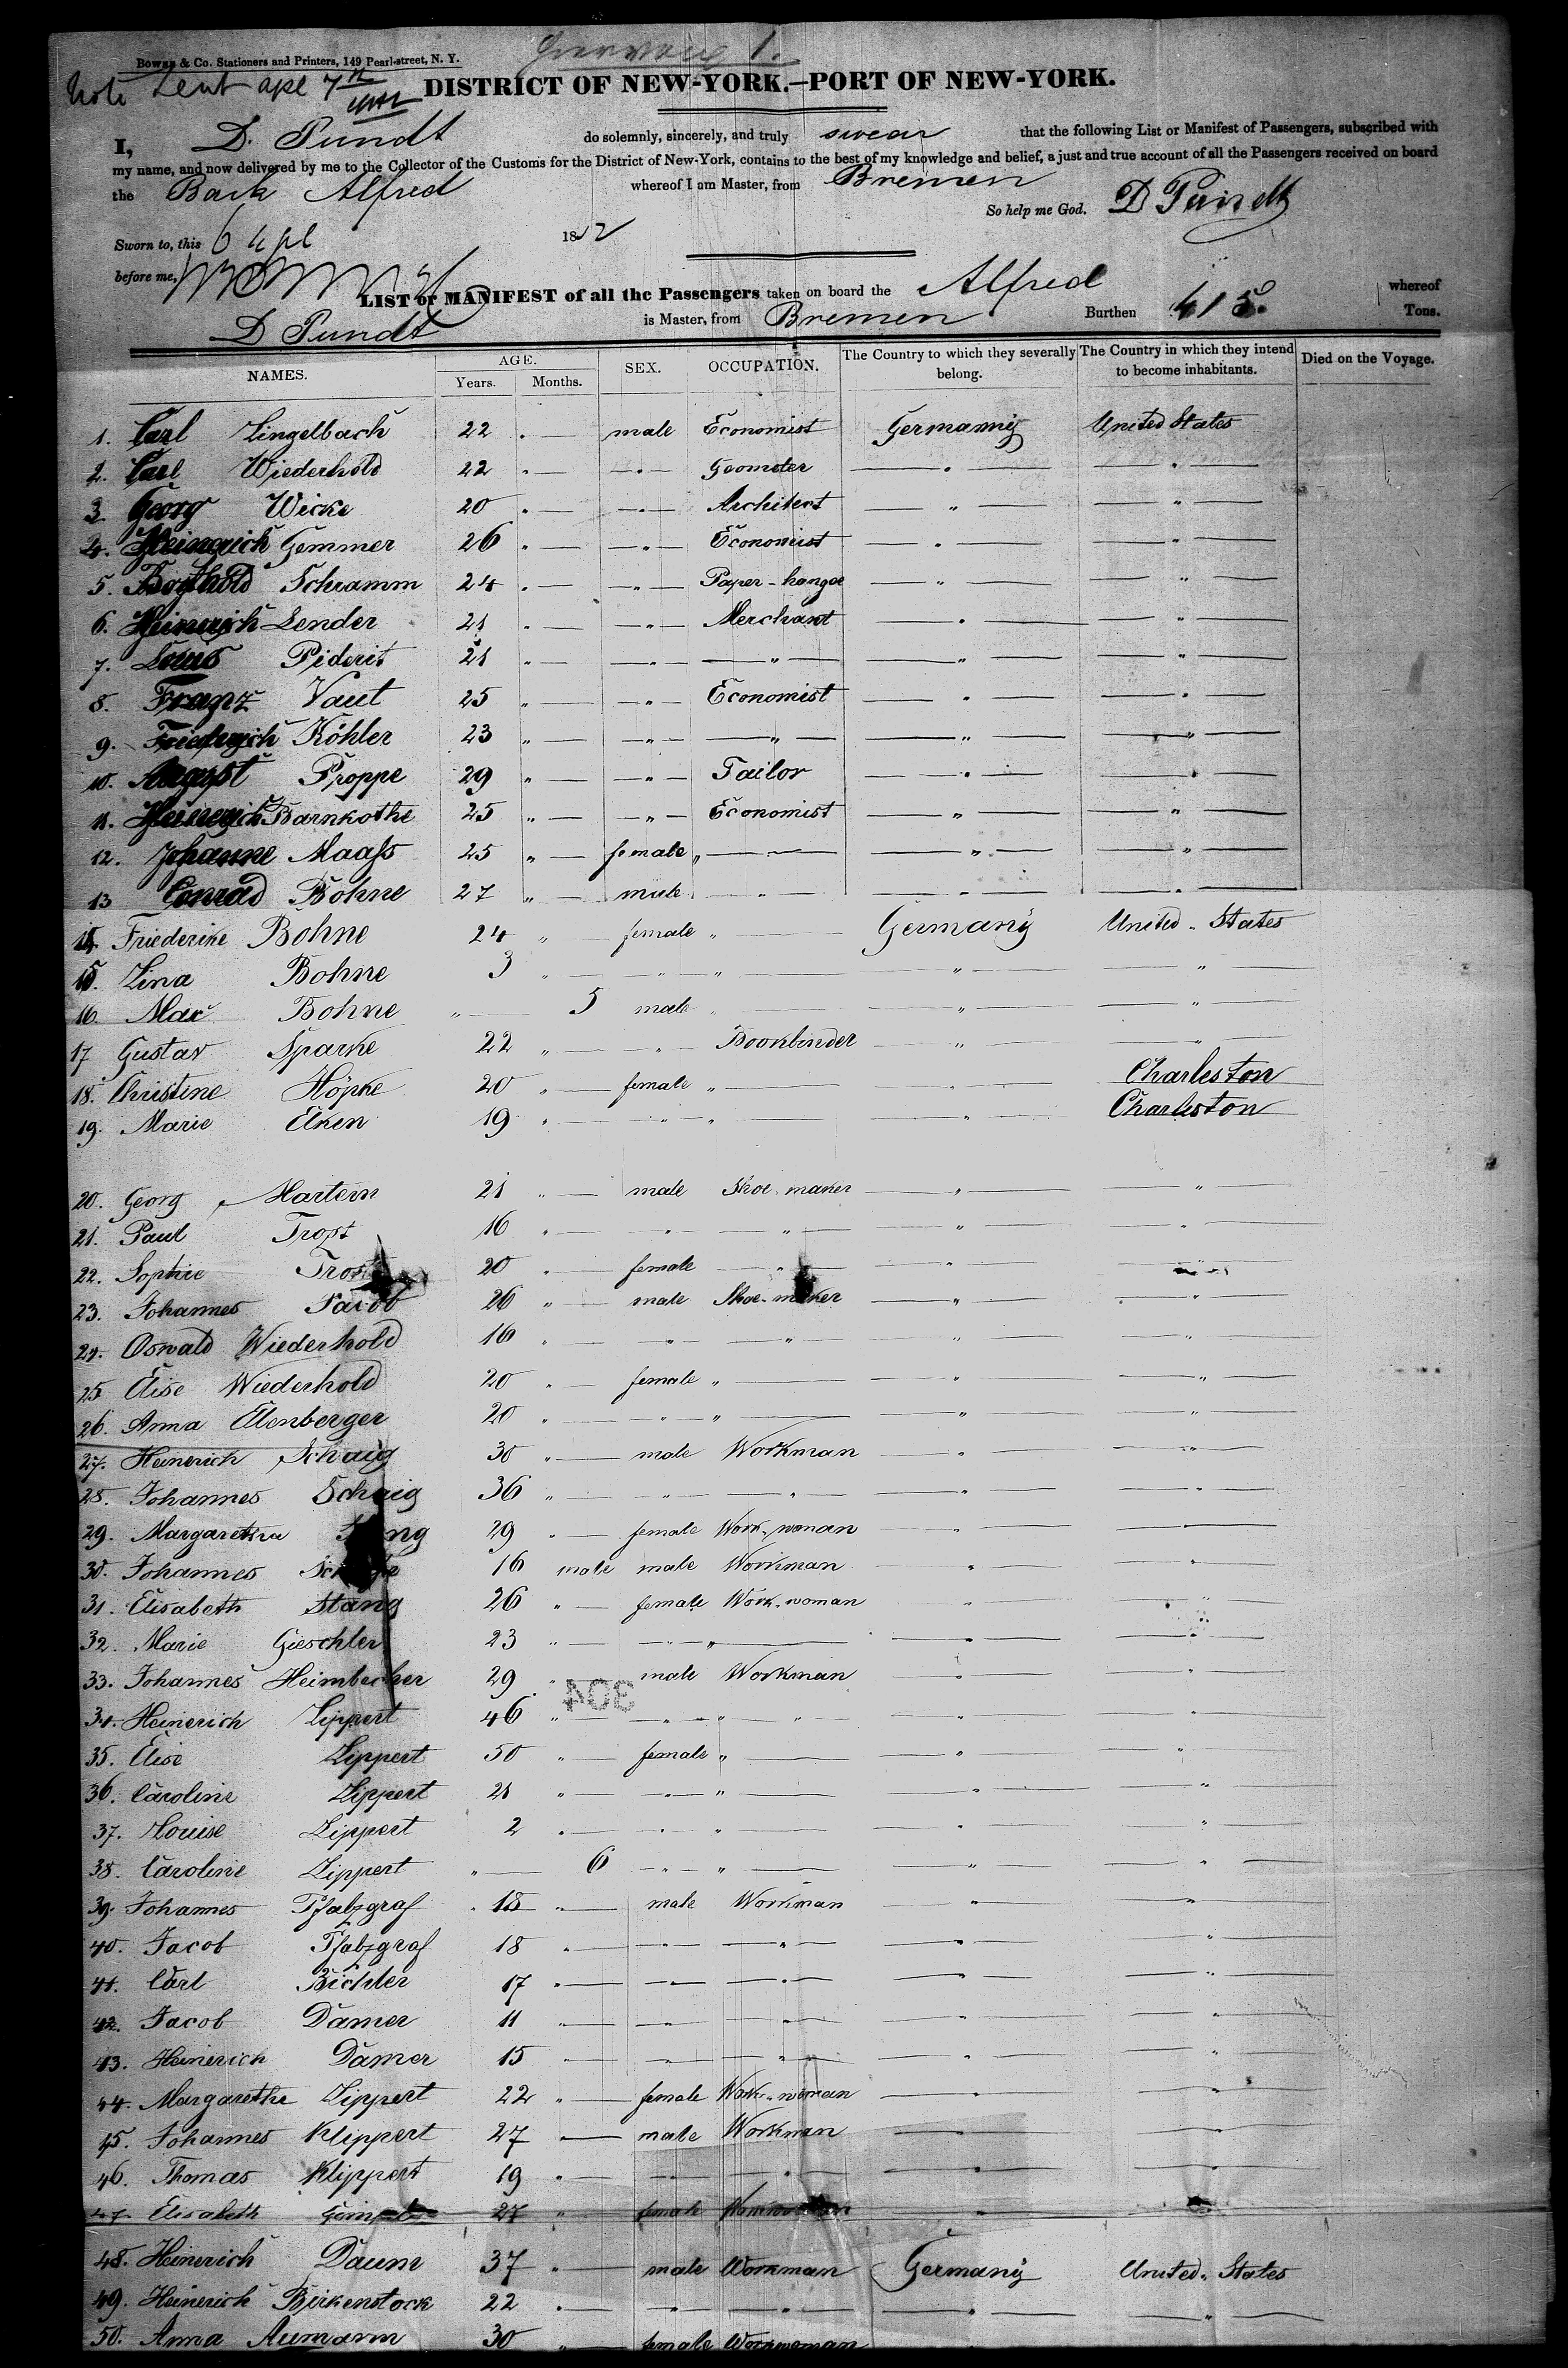 Bowne & Co. Stationers and Printers, 149 Pearl-street, N. Y.
DISTRICT OF NEW-YORK.—PORT OF NEW-YORK.
I, D. Pundt do solemnly, sincerely, and truly swear that the following List or Manifest of Passengers, subscribed with
my name, and now delivered by me to the Collector of the Customs for the District of New-York, contains to the best of my knowledge and belief, a just and true account of all the Passengers received on board
the Bark Alfred whereof I am Master, from Bremen
So help me God. D Pundt
Sworn to, this 6 Apl 1852
before me,
LIST or MANIFEST of all the Passengers taken on board the Alfred whereof
D Pundt is Master, from Bremen Burthen 415. Tons.
NAMES. AGE. Years. Months. SEX. OCCUPATION. The Country to which they severally belong. The Country in which they intend to become inhabitants. Died on the Voyage.
1. Carl Lingelbach 22 " — male Economist Germany United States
2. Carl Wiederhold 22 " — — " — Geometer — " — — " —
3. Georg Wicke 20 " — — " — Architect — " — — " —
4. Heinerich Gemmer 26 " — — " — Economist — " — — " —
5. Schramm 24 " — — " — Paper-hanger — " — — " —
6. Heinerich Lender 21 " — — " — Merchant — " — — " —
7. Louis Piderit 21 " — — " — — " — — " — — " —
8. Franz Vaut 25 " — — " — Economist — " — — " —
9. Friederich Köhler 23 " — — " — — " — — " — — " —
10. August Proppe 29 " — — " — Tailor — " — — " —
11. Heinerich Barnkothe 25 " — — " — Economist — " — — " —
12. Johanne Maaſs 25 " — female " — — " — — " —
13 Conrad Bohne 27 " — male — " — — " — — " —
14. Friederike Bohne 24 " female " — Germany United States
15. Lina Bohne 3 " — — " — " — — " — — " —
16. Max Bohne " — 5 male " — " — — " —
17 Gustav Sparke 22 " — — " — Bookbinder — " — — " —
18. Christine Höpke 20 " — female " — — " — Charleston
19. Marie Elken 19 " — — " — " — — " — Charleston
20. Georg Martern 21 " — male Shoe-maker — " — — " —
21. Paul Trost 16 " — — " — — " — — " — — " —
22. Sophie Trost 20 " — female — " — — " — — " —
23. Johannes Jacob 26 " — male Shoe-maker — " — — " —
24. Oswald Wiederhold 16 " — — " — — " — — " — — " —
25 Elise Wiederhold 20 " — female " — — " — — " —
26. Anna Ellenberger 20 " — — " — " — — " — — " —
27. Heinerich Schaig 30 " — male Workman — " — — " —
28. Johannes Schaig 36 " — — " — — " — — " — — " —
29. Margaretha 29 " — female Work-woman — " — — " —
30. Johannes 16 male male Workman — " — — " —
31. Elisabeth Stang 26 " — female Work-woman — " — — " —
32. Marie Gieschler 23 " — — " — " — — " — — " —
33. Johannes Heimbecher 29 " male Workman — " — — " —
304
34. Heinerich Lippert 46 " — — " — " " — " — — " —
35. Elise Lippert 50 " — female " — — " — — " —
36. Caroline Lippert 21 " — — " — " — — " — — " —
37. Louise Lippert 2 " — — " — " — — " — — " —
38. Caroline Lippert " — 6 — " — " — — " — — " —
39. Johannes Pfalzgraf 18 " — male Workman — " — — " —
40. Jacob Pfalzgraf 18 " — — " — — " — — " — — " —
41. Carl Bichler 17 " — — " — — " — — " — — " —
42. Jacob Damer 11 " — — " — — " — — " — — " —
43. Heinerich Damer 15 " — — " — — " — — " — — " —
44. Margarethe Lippert 22 " — female Work-woman — " — — " —
45. Johannes Klippert 27 " — male Workman — " — — " —
46. Thomas Klippert 19 " — — " — — " — — " — — " —
47. Elisabeth 27 " — female — " — — " —
48. Heinerich Daum 37 " — male Workman Germany United States
49. Heinerich Birkenstock 22 " — — " — — " — — " — — " —
50. Anna Aumann 30 " — female Workwoman